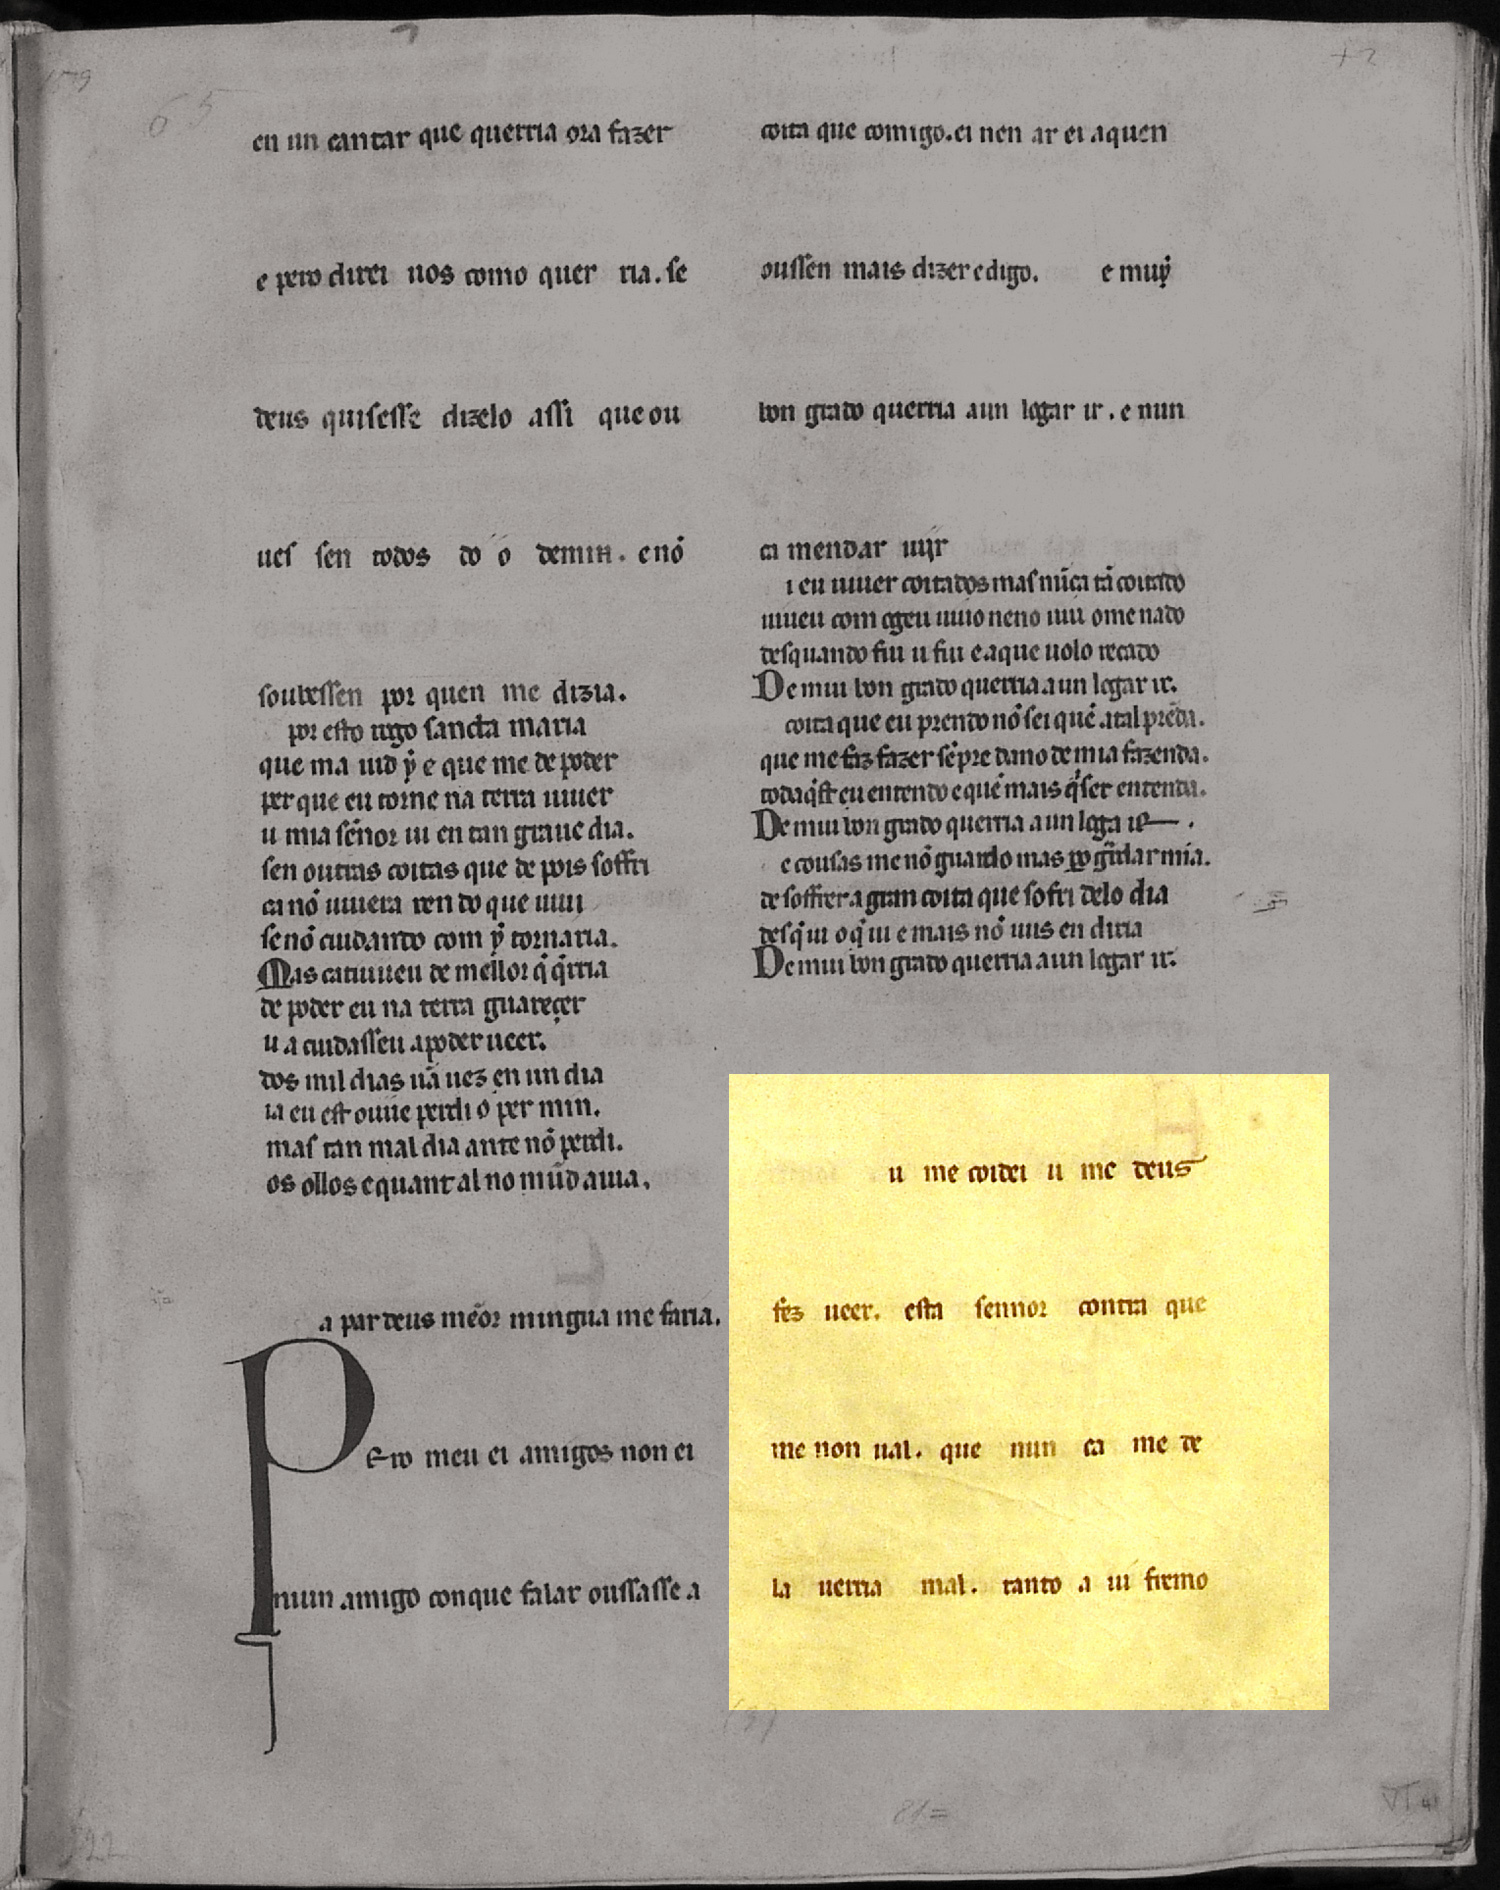 en un cantar que querria ora fazer
e pero direi uos como quer ria. se
deus quisesse dizelo assi que ou
ues sen todos do o demin. enõ
soubessen por quen me dizia.
por esto rogo sancta maria
que ma uid ẏ e que me de poder
per que eu torne na terra uiuer
u mia sẽnor ui en tan graue dia.
sen outras coitas que de pois soffri
ca nõ uiuera ren do que uiui
senõ cuidando com ẏ tornaria.
Mas catiuueu de mellor q̃ q̃rria
de poder eu na terra guareçer
u a cuidasseu a poder ueer.
dos mil dias uã uez en un dia
ia eu est ouue perdi o per min.
mas tan mal dia ante nõ perdi.
os ollos e quant al no mũd auia.
a par deus mẽor mingua me faria.
Pero meu ei amigos non ei
niun amigo con que falar oussasse a
coita que comigo. ei nen ar ei a quen
oussen mais dizer e digo. e muẏ
bon grado querria a un logar ir. e nun
ca mendar uĩjr
i eu uiuer coitados mas nũca tã coitado
uiueu com ogeu uiuo neno uiu ome nado
desquando fui u fui e aque uolo recado
De mui bon grado querria a un logar ir.
coita que eu prendo nõ sei quẽ atal prẽda.
que me faz fazer sẽpre dano de mia fazenda.
tod aq̃st eu entendo e quẽ mais q̃ser entenda.
De mui bon grado querria a un loga ir .
e cousas me nõ guardo mas guardarmia.
de soffrer a gran coita que sofri delo dia
desq̃ ui o q̃ ui e mais nõ uus en diria
De mui bon grado querria a un logar ir.
u me coidei u me deus
fez ueer. esta sennor contra que
me non ual. que nun ca me de
la uerria mal. tanto a ui fremo